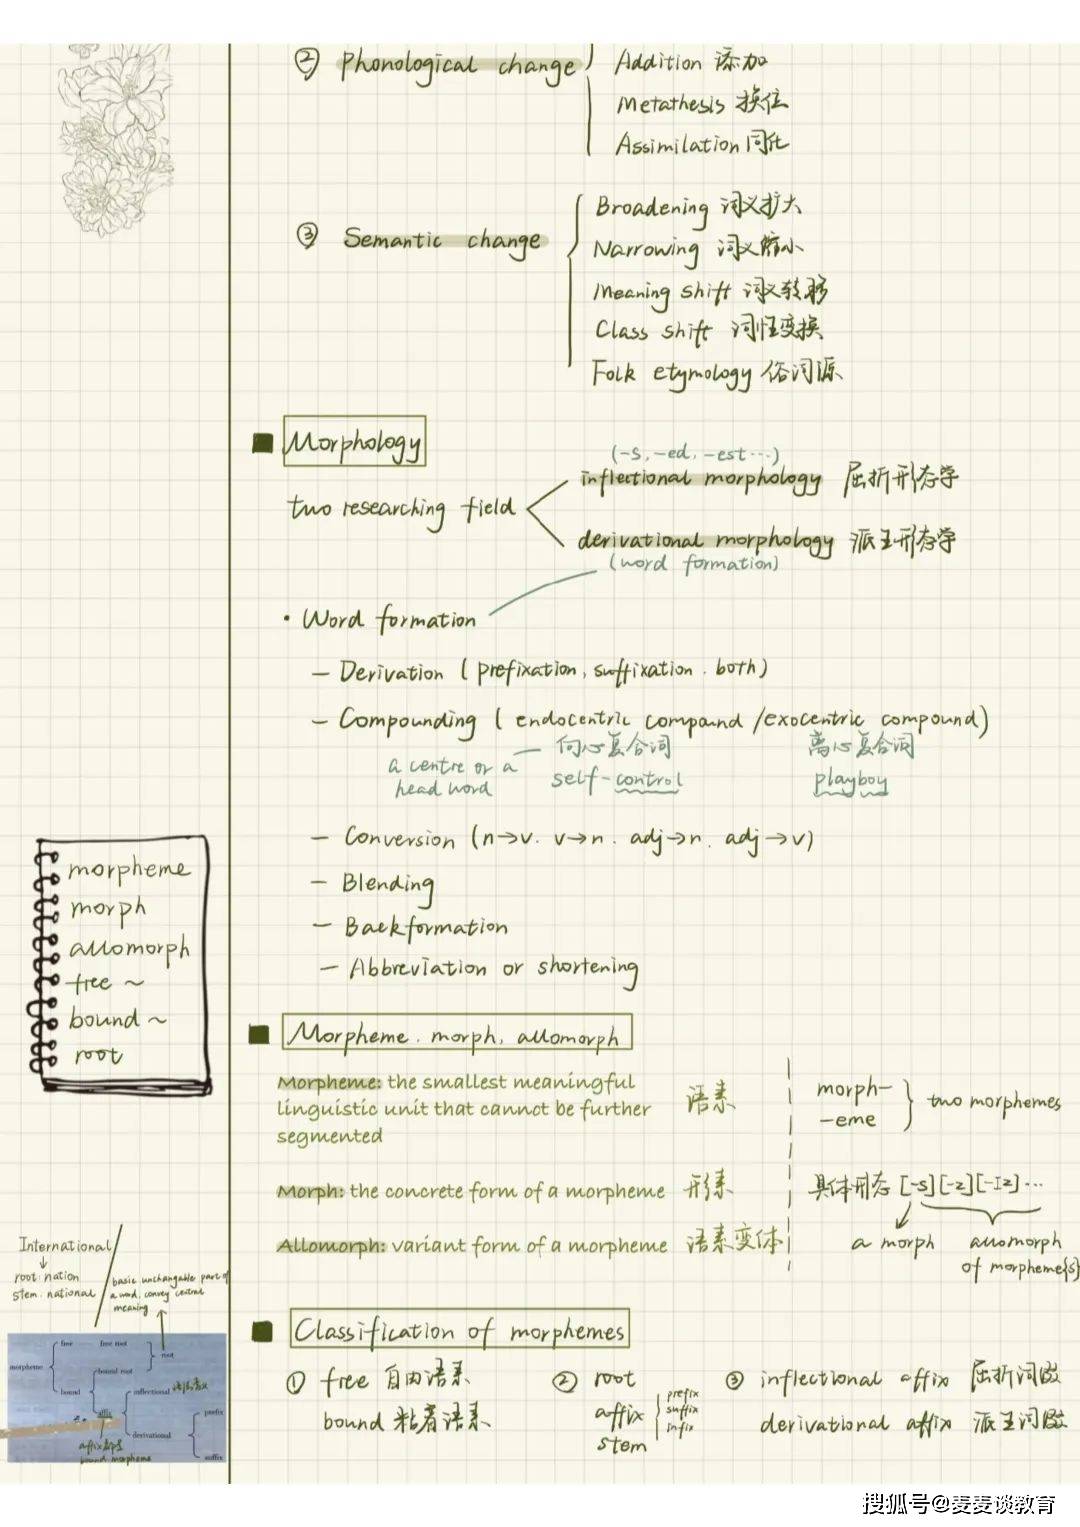 ② Phonological change
Addition 添加
Metathesis 换位
Assimilation 同化
③ Semantic change
Broadening 词义扩大
Narrowing 词义缩小
Meaning shift 词义转移
Class shift 词性变换
Folk etymology 俗词源
Morphology
two researching field
(-s, -ed, -est…)
inflectional morphology 屈折形态学
derivational morphology 派生形态学
(word formation)
· Word formation
— Derivation (prefixation, suffixation. both)
— Compounding (endocentric compound/exocentric compound)
a centre or a head word — 向心复合词 离心复合词
self-control playboy
— Conversion (n→v. v→n. adj→n. adj→v)
— Blending
— Backformation
— Abbreviation or shortening
morpheme
morph
allomorph
free ~
bound ~
root
Morpheme. morph, allomorph
Morpheme: the smallest meaningful
linguistic unit that cannot be further
segmented
语素
morph-
-eme
two morphemes
Morph: the concrete form of a morpheme 形素
具体形态 [-s][-z][-Iz]…
Allomorph: variant form of a morpheme 语素变体
a morph
allomorph
of morpheme{s}
International
root: nation
stem: national
basic unchangable part of
a word, convey central
meaning
morpheme
free
free root
root
bound
bound root
affix
inflectional
derivational
prefix
suffix
bound morpheme
Classification of morphemes
① free 自由语素
bound 粘着语素
② root
affix
stem
prefix
suffix
infix
③ inflectional affix 屈折词缀
derivational affix 派生词缀
搜狐号@麦麦谈教育